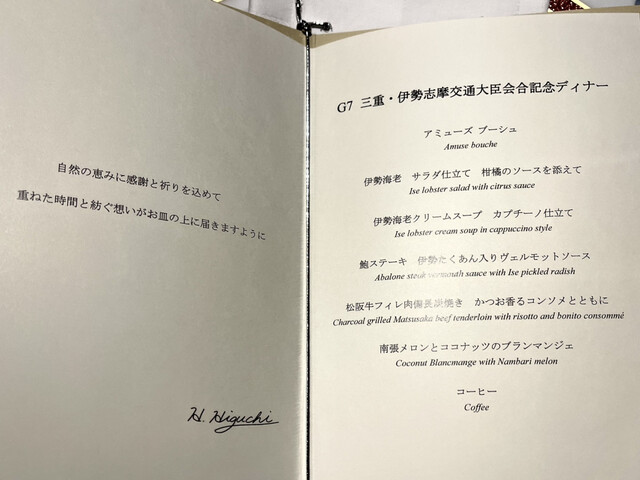 自然の恵みに感謝と祈りを込めて
重ねた時間と紡ぐ想いがお皿の上に届きますように
H. Higuchi
G7 三重・伊勢志摩交通大臣会合記念ディナー
アミューズ ブーシュ
Amuse bouche
伊勢海老 サラダ仕立て 柑橘のソースを添えて
Ise lobster salad with citrus sauce
伊勢海老クリームスープ カプチーノ仕立て
Ise lobster cream soup in cappuccino style
鮑ステーキ 伊勢たくあん入りヴェルモットソース
Abalone steak vermouth sauce with Ise pickled radish
松阪牛フィレ肉備長炭焼き かつお香るコンソメとともに
Charcoal grilled Matsusaka beef tenderloin with risotto and bonito consommé
南張メロンとココナッツのブランマンジェ
Coconut Blancmange with Nambari melon
コーヒー
Coffee